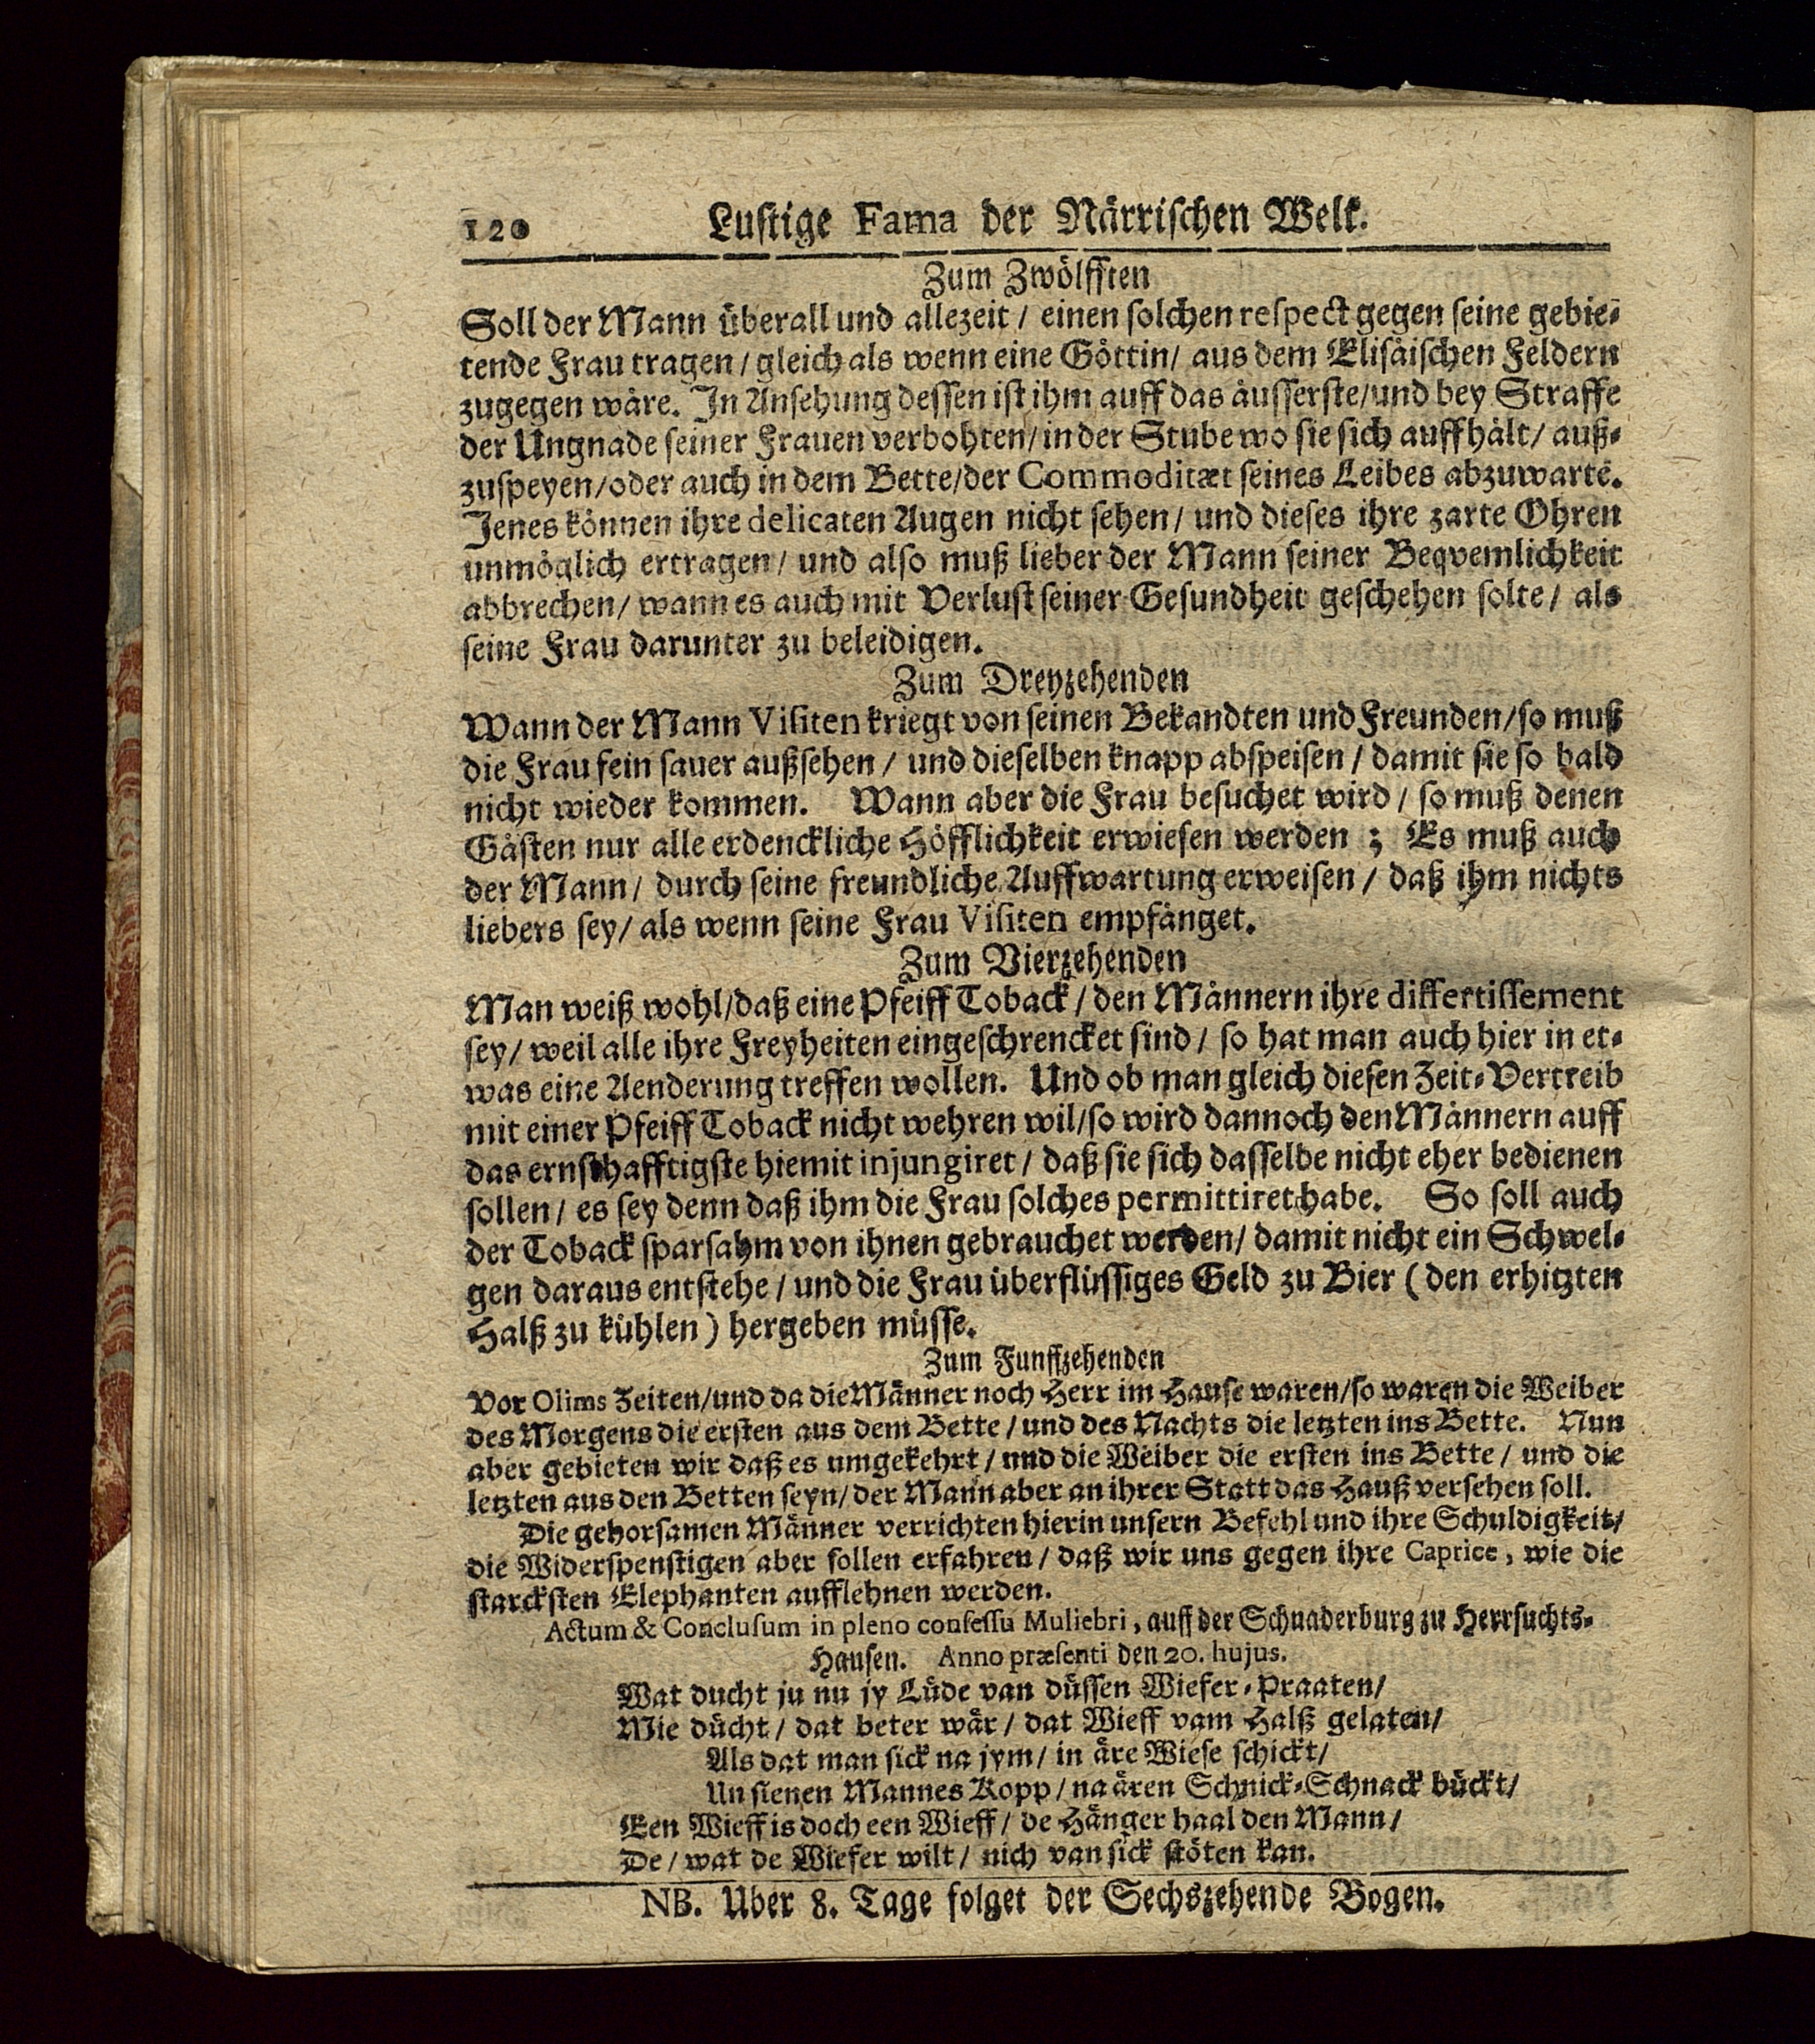 120 Lustige Fama der Närrischen Welt.
Zum Zwölfften
Soll der Mann überall und allezeit / einen solchen respect gegen seine gebie-
tende Frau tragen / gleich als wenn eine Göttin / aus dem Elisäischen Feldern
zugegen wäre. In Ansehung dessen ist ihm auff das äusserste/und bey Straffe
der Ungnade seiner Frauen verbohten/ in der Stube wo sie sich auffhält/ auß-
zuspeyen/oder auch in dem Bette/der Commoditæt seines Leibes abzuwartē.
Jenes können ihre delicaten Augen nicht sehen/ und dieses ihre zarte Ohren
unmöglich ertragen/ und also muß lieber der Mann seiner Beqvemlichkeit
abbrechen/ wann es auch mit Verlust seiner Gesundheit geschehen solte/ als
seine Frau darunter zu beleidigen.
Zum Dreyzehenden
Wann der Mann Visiten kriegt von seinen Bekandten und Freunden/so muß
die Frau fein sauer außsehen / und dieselben knapp abspeisen / damit sie so bald
nicht wieder kommen. Wann aber die Frau besuchet wird / so muß denen
Gästen nur alle erdenckliche Höfflichkeit erwiesen werden ; Es muß auch
der Mann/ durch seine freundliche Auffwartung erweisen / daß ihm nichts
liebers sey/ als wenn seine Frau Visiten empfänget.
Zum Vierzehenden
Man weiß wohl/daß eine Pfeiff Toback / den Männern ihre differtissement
sey/ weil alle ihre Freyheiten eingeschrencket sind / so hat man auch hier in et-
was eine Aenderung treffen wollen. Und ob man gleich diesen Zeit-Vertreib
mit einer Pfeiff Toback nicht wehren wil/so wird dannoch den Männern auff
das ernsthafftigste hiemit injungiret / daß sie sich dasselbe nicht eher bedienen
sollen / es sey denn daß ihm die Frau solches permittiret habe. So soll auch
der Toback sparsahm von ihnen gebrauchet werden/ damit nicht ein Schwel-
gen daraus entstehe / und die Frau überflüssiges Geld zu Bier ( den erhitzten
Halß zu kühlen ) hergeben müsse.
Zum Funffzehenden
Vor Olims Zeiten/und da die Männer noch Herr im Hause waren/so waren die Weiber
des Morgens die ersten aus dem Bette / und des Nachts die letzten ins Bette. Nun
aber gebieten wir daß es umgekehrt / und die Weiber die ersten ins Bette / und die
letzten aus den Betten seyn/ der Mann aber an ihrer Statt das Hauß versehen soll.
Die gehorsamen Männer verrichten hierin unsern Befehl und ihre Schuldigkeit/
die Widerspenstigen aber sollen erfahren / daß wir uns gegen ihre Caprice, wie die
starcksten Elephanten aufflehnen werden.
Actum & Conclusum in pleno consessu Muliebri, auff der Schnaderburg zu Herrsuchts-
Hausen. Anno præsenti den 20. hujus.
Wat ducht ju nu jy Lüde van düssen Wiefer-Praaten/
Mie dücht / dat beter wär / dat Wieff vam Halß gelaten/
Als dat man sick na jym/ in äre Wiese schickt/
Un sienen Mannes Kopp / na ären Schnick-Schnack bückt/
Een Wieff is doch een Wieff / de Hänger haal den Mann /
De / wat de Wiefer wilt / nich van sick stöten kan.
NB. Uber 8. Tage folget der Sechszehende Bogen.